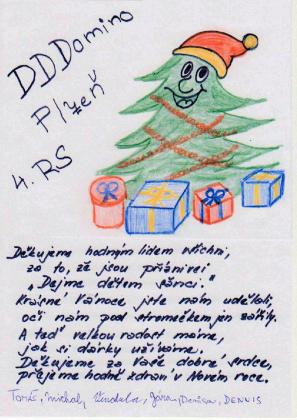 DDDomino
Plzeň
4. RS
Děkujeme hodným lidem všichni,
za to, že jsou příznivci
„Dejme dětem šanci."
Krásné Vánoce jste nám udělali,
oči nám pod stromečkem jen zářily.
A teď velkou radost máme,
jak si dárky užíváme.
Děkujeme za Vaše dobré srdce,
přejeme hodně zdraví v Novém roce.
Tomáš, Michal, Vendula, Jana, Denisa, DENNIS